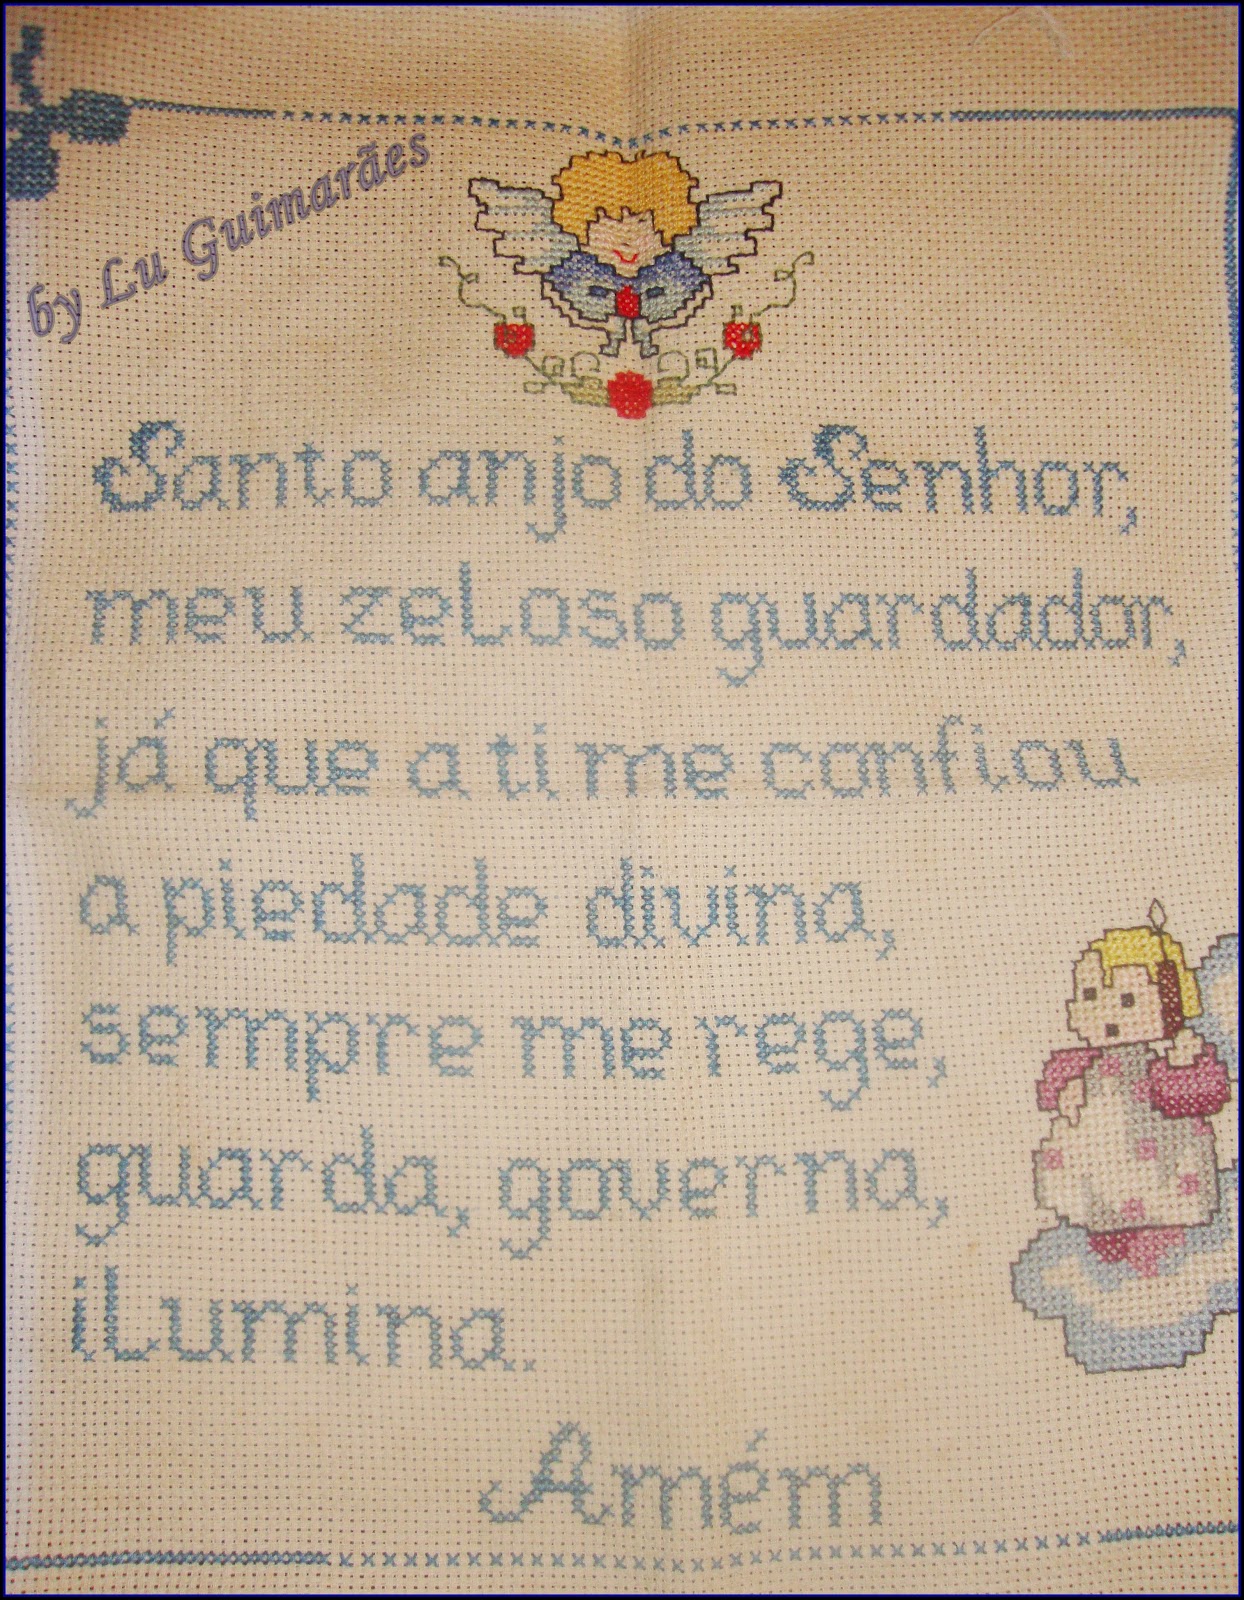 by Lu Guimarães
Santo anjo do Senhor,
meu zeloso guardador,
já que a ti me confiou
a piedade divina,
sempre me rege,
guarda, governa,
ilumina.
Amém